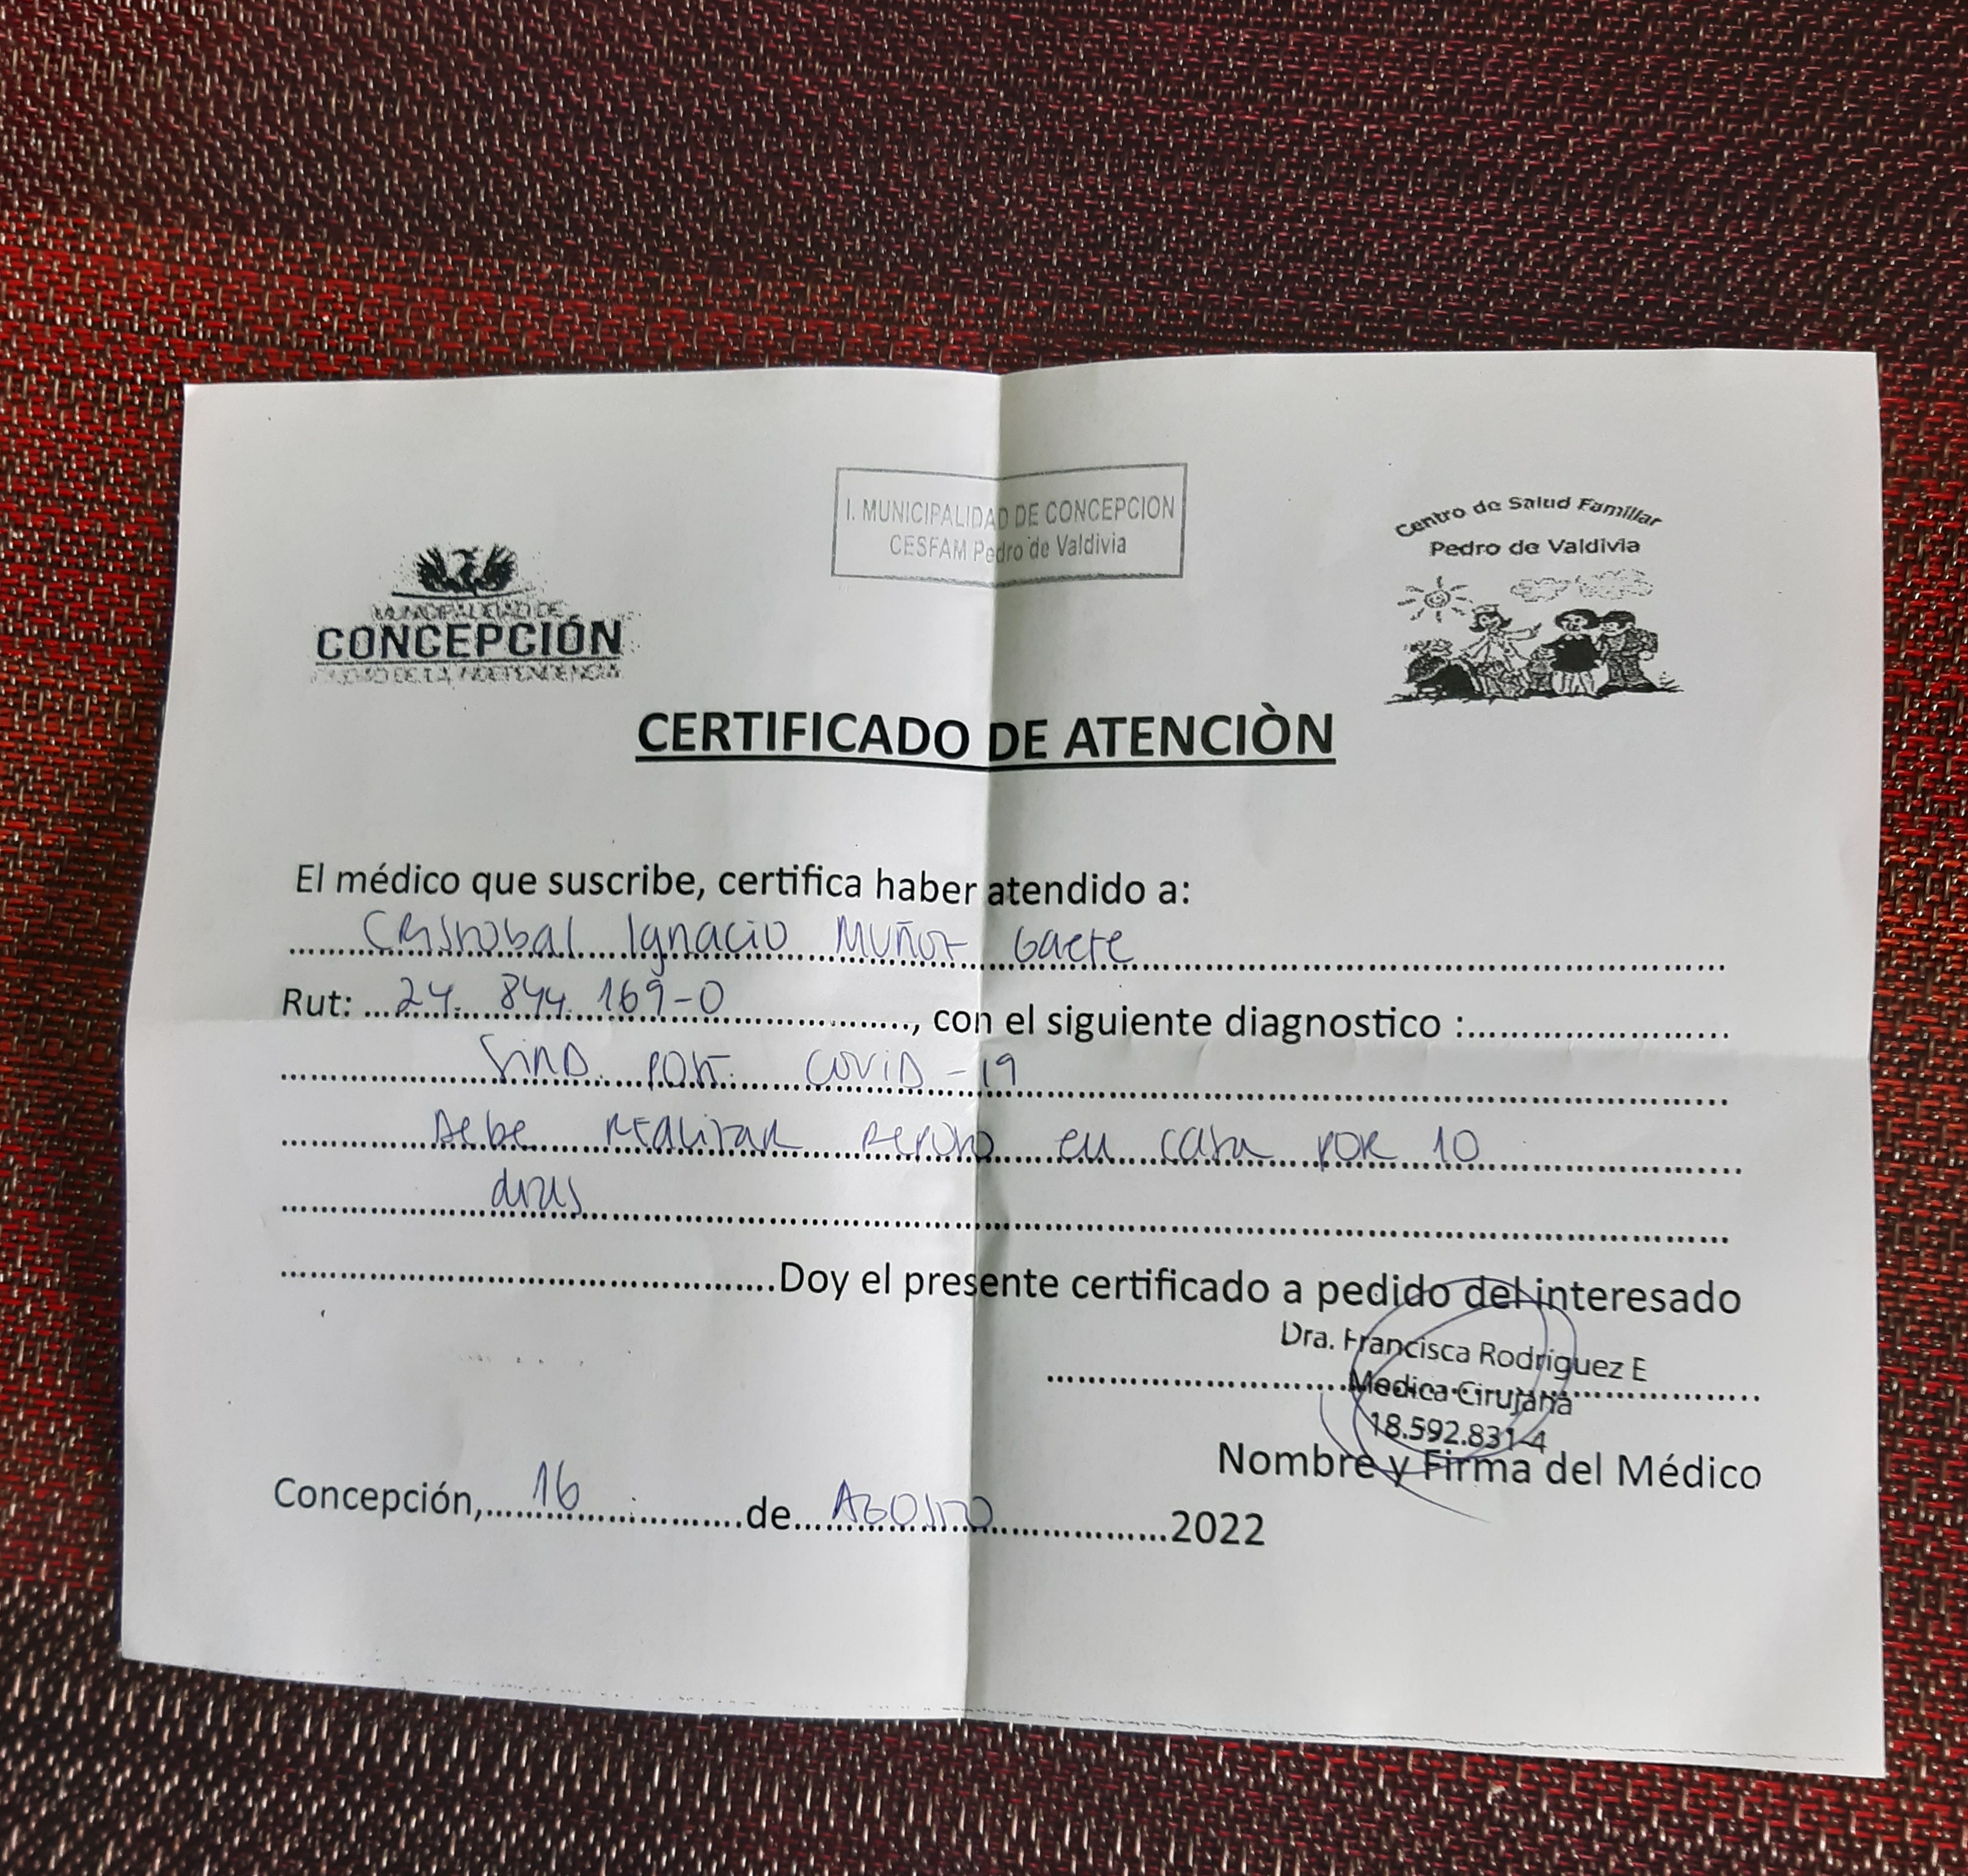 I. MUNICIPALIDAD DE CONCEPCION
CESFAM Pedro de Valdivia
Centro de Salud Familiar
Pedro de Valdivia
MUNICIPALIDAD DE
CONCEPCIÓN
CIUDAD DE LA INDEPENDENCIA
CERTIFICADO DE ATENCIÒN
El médico que suscribe, certifica haber atendido a:
Cristobal Ignacio Muñoz Gaete
Rut: 24.844.169-0, con el siguiente diagnostico :
Sind. post. COVID-19
Debe realizar reposo en casa por 10
dias
Doy el presente certificado a pedido del interesado
Dra. Francisca Rodriguez E
Medica Cirujana
18.592.831-4
Nombre y Firma del Médico
Concepción, 16 de Agosto 2022